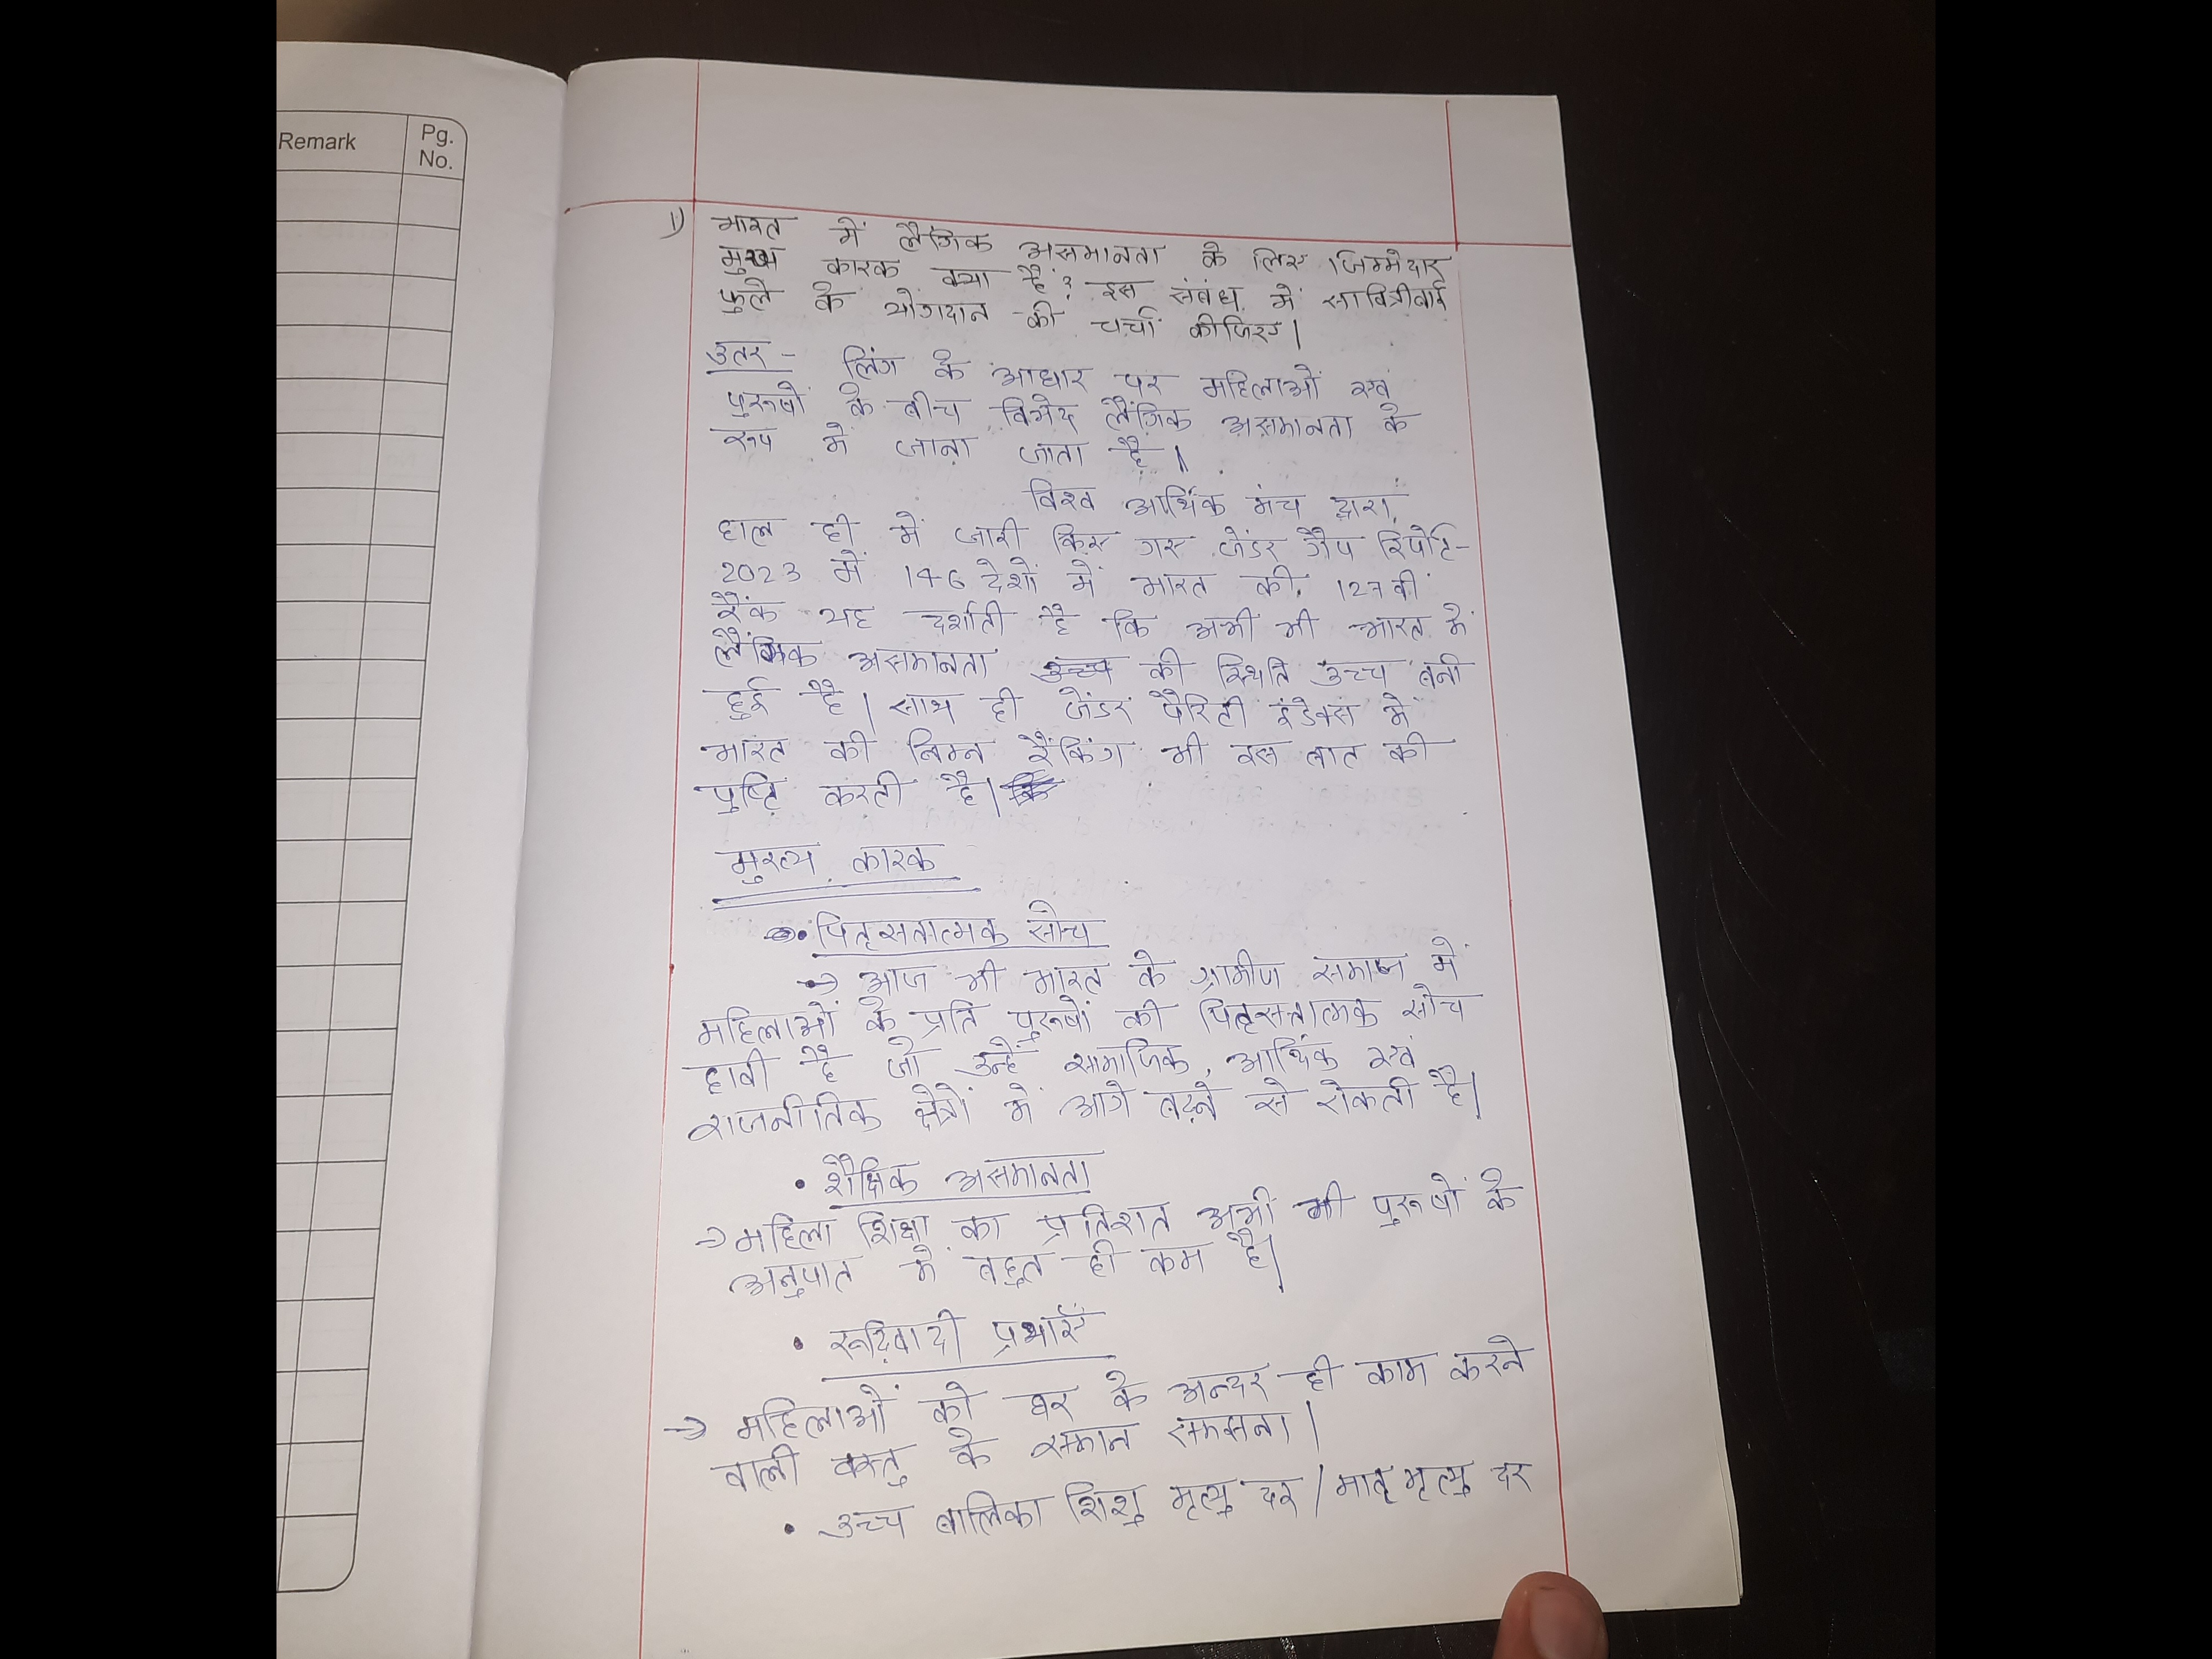 Remark
Pg.
No.
1) भारत में लैंगिक असमानता के लिए जिम्मेदार
मुख्य कारक क्या हैं? इस संबंध में सावित्रीबाई
फुले के योगदान की चर्चा कीजिए।
उतर - लिंग के आधार पर महिलाओं एवं
पुरूषों के बीच विभेद लैंगिक असमानता के
रूप में जाना जाता है।
विश्व आर्थिक मंच द्वारा
हाल ही में जारी किए गए जेंडर गैप रिपोर्ट-
2023 में 146 देशों में भारत की 127 वीं
रैंक यह दर्शाती है कि अभी भी भारत में
लैंगिक असमानता की स्थिति उच्च बनी
हुई है। साथ ही जेंडर पैरिटी इंडेक्स में
भारत की निम्न रैंकिंग भी इस बात की
पुष्टि करती है।
मुख्य कारक
• पितृसतात्मक सोच
→ आज भी भारत के ग्रामीण समाज में
महिलाओं के प्रति पुरूषों की पितृसत्तात्मक सोच
हावी है जो उन्हें सामाजिक, आर्थिक एवं
राजनीतिक क्षेत्रों में आगे बढ़ने से रोकती है।
• शैक्षिक असमानता
→ महिला शिक्षा का प्रतिशत अभी भी पुरूषों के
अनुपात में बहुत ही कम है।
• रूढ़िवादी प्रथाएँ
→ महिलाओं को घर के अन्दर ही काम करने
वाली वस्तु के समान समझना।
• उच्च बालिका शिशु मृत्यु दर / मातृ मृत्यु दर